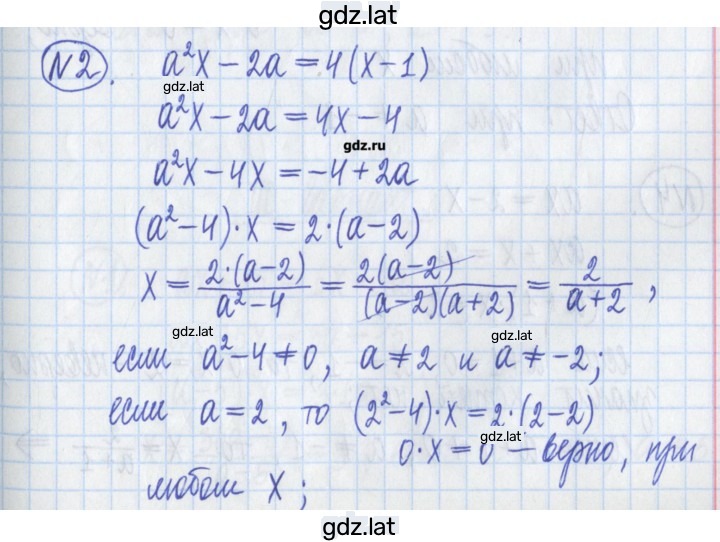 gdz.lat
№2. a²x − 2a = 4(x−1)
gdz.lat
a²x − 2a = 4x − 4
gdz.ru
a²x − 4x = −4 + 2a
(a² − 4)·x = 2·(a−2)
x = 2·(a−2)/(a²−4) = 2(a−2)/((a−2)(a+2)) = 2/(a+2),
gdz.lat
если a²−4≠0, a≠2 и a≠−2;
если a=2, то (2²−4)·x=2·(2−2)
gdz.lat
0·x=0 — верно, при
любом x;
gdz.lat